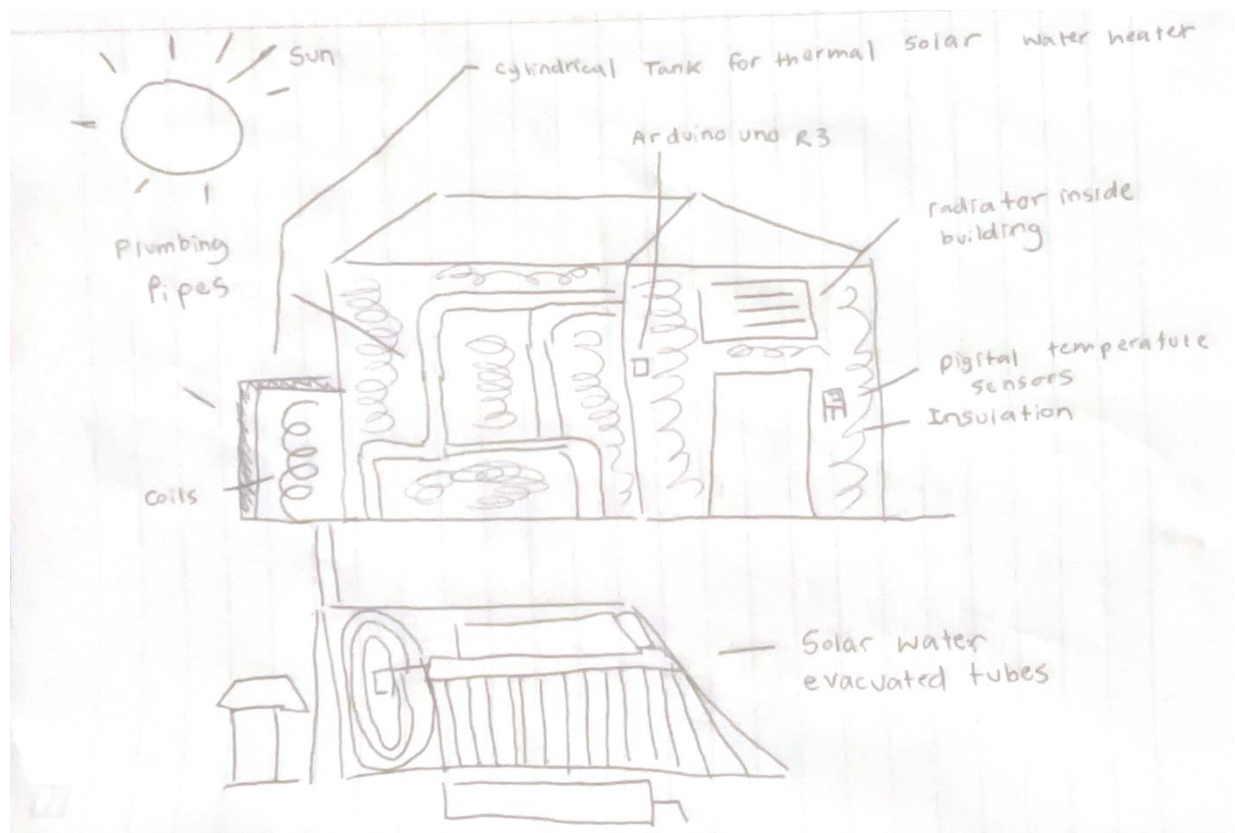 Sun
cylindrical Tank for thermal Solar water heater
Arduino uno R3
radiator inside
building
Plumbing
Pipes
Digital temperature
sensors
Insulation
coils
Solar water
evacuated tubes